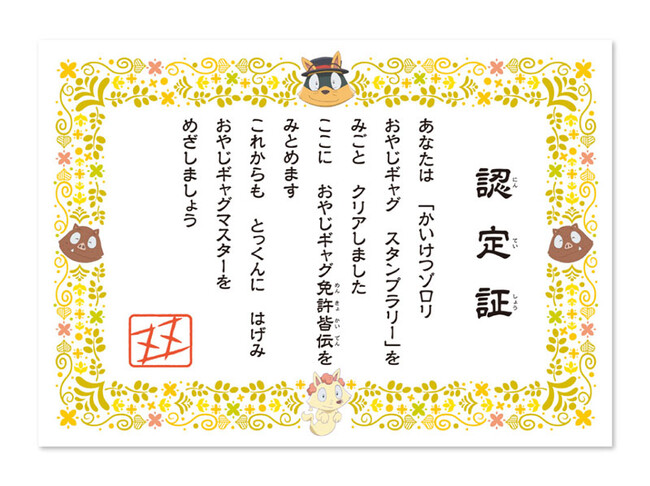 認定証
にんていしょう
あなたは 「かいけつゾロリ
おやじギャグ スタンプラリー」を
みごと クリアしました
ここに おやじギャグ免許皆伝を
めんきょかいでん
みとめます
これからも とっくんに はげみ
おやじギャグマスターを
めざしましょう